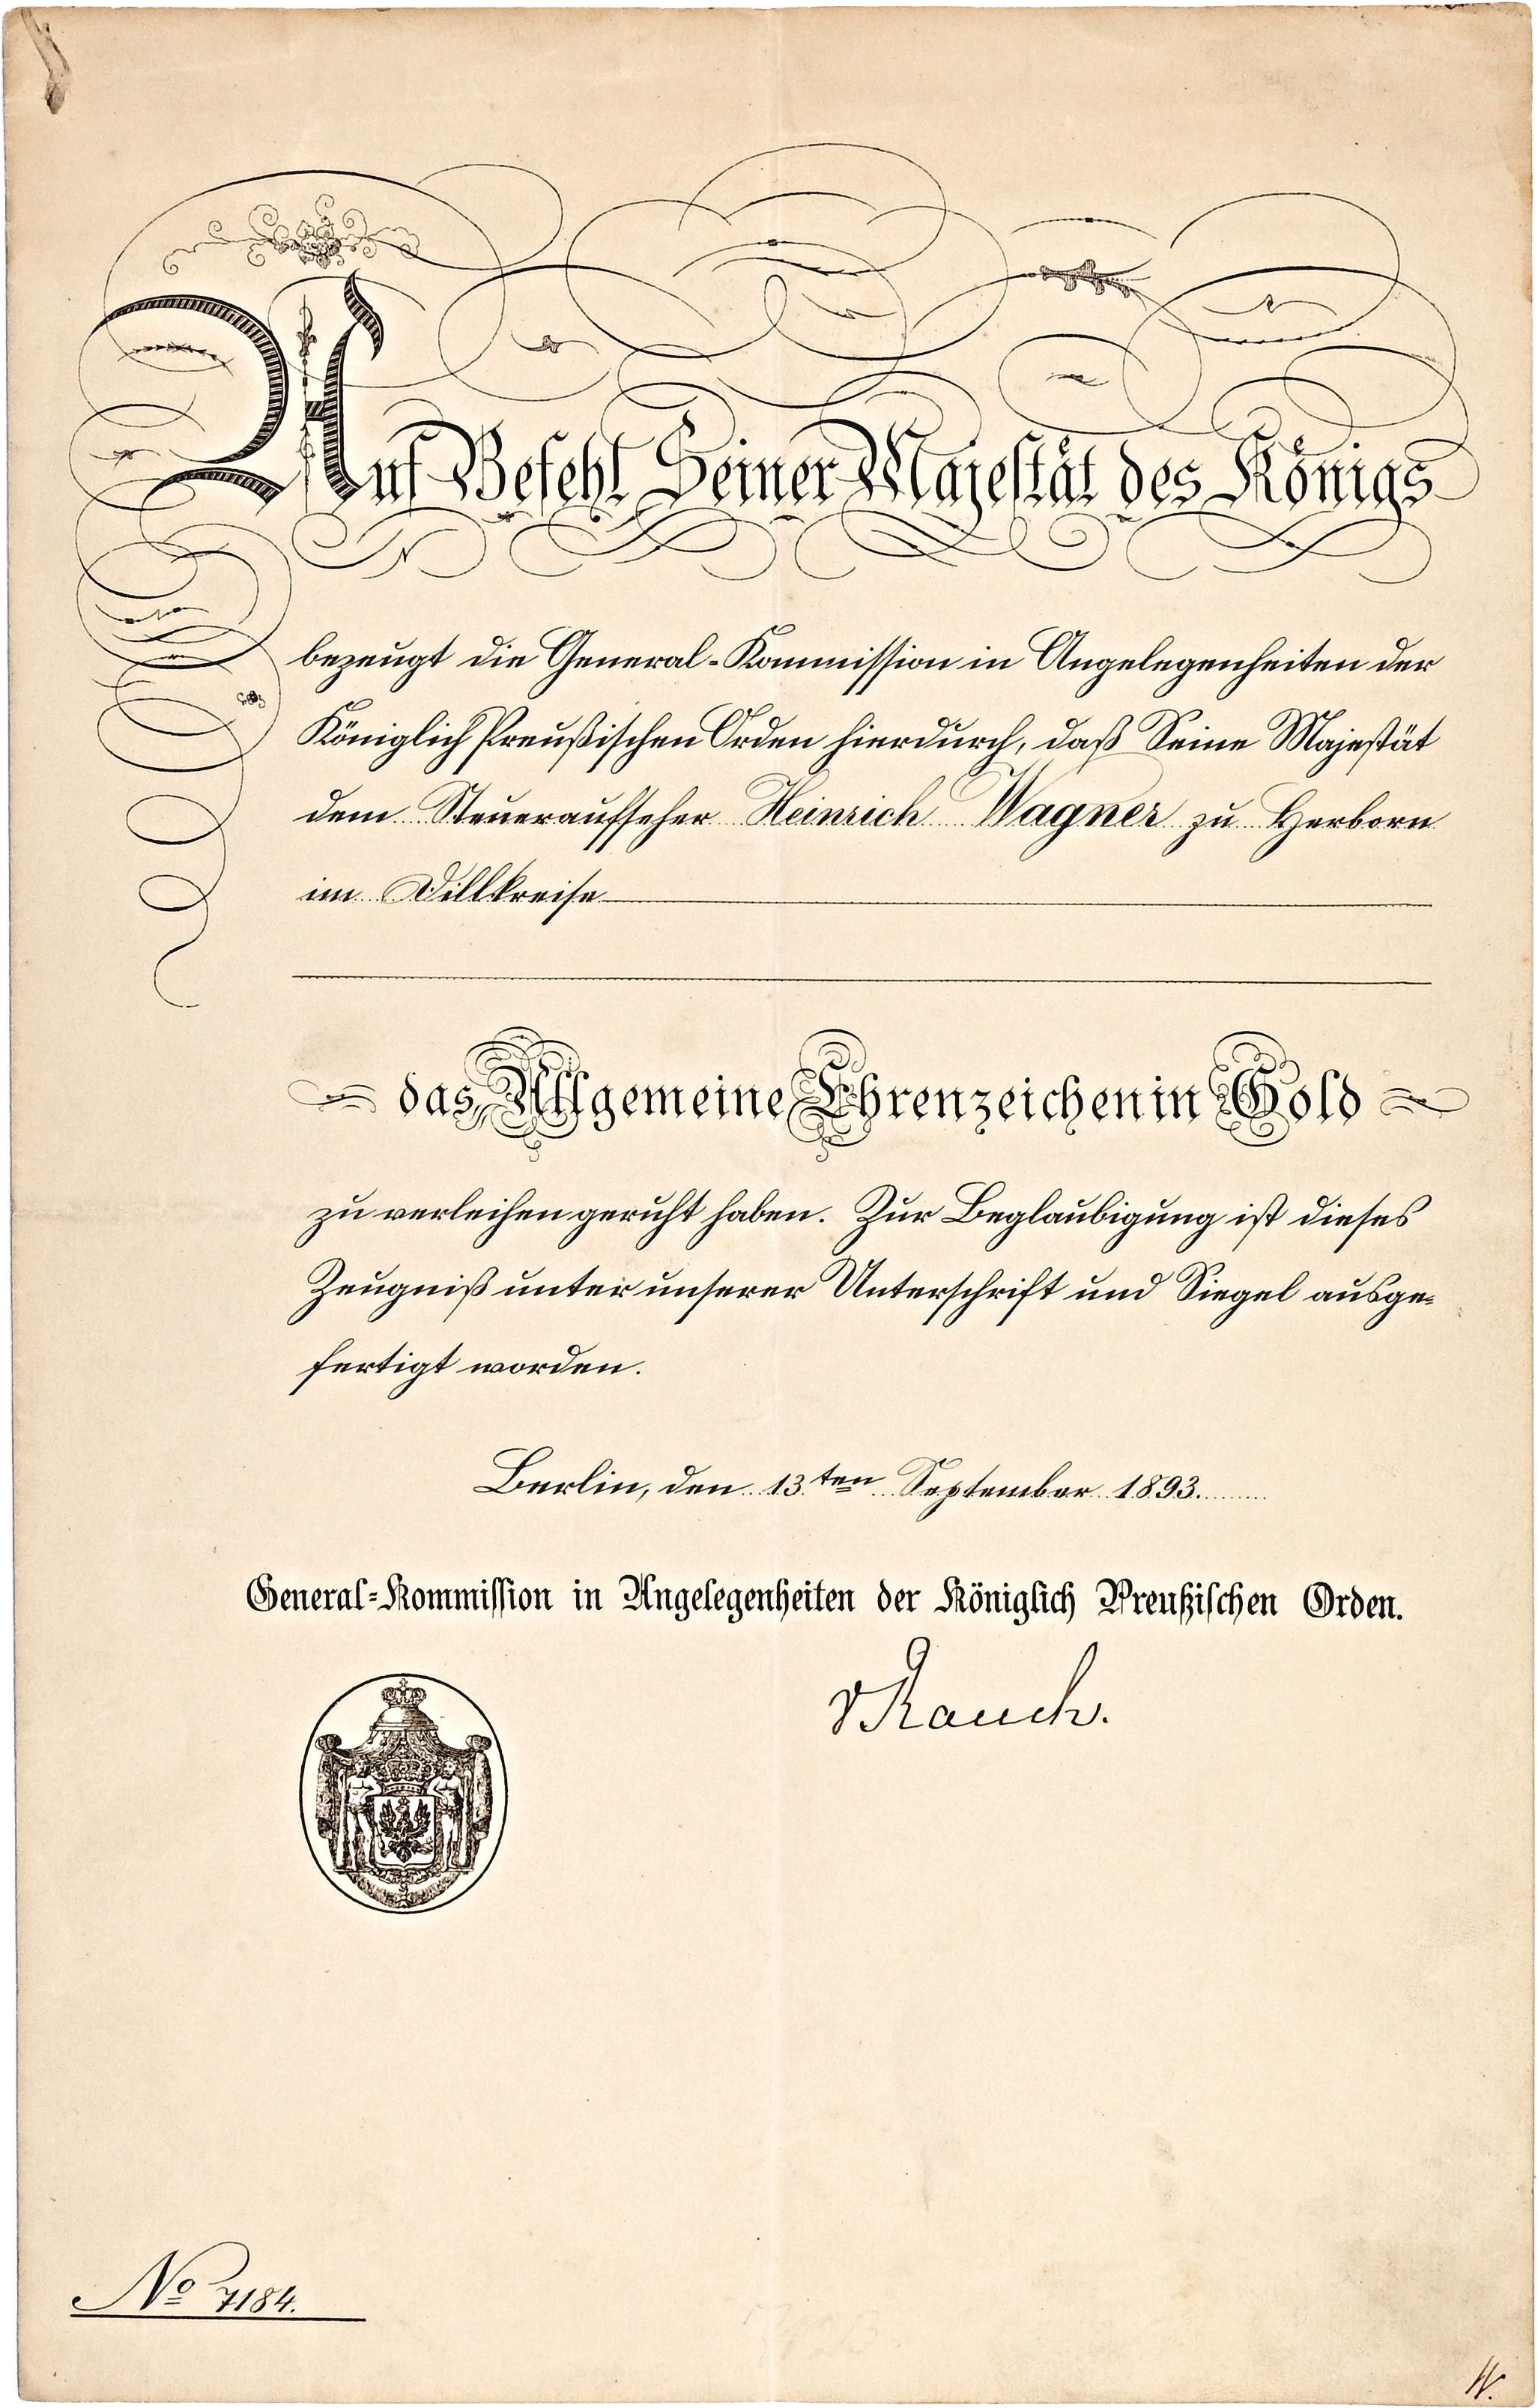 Auf Befehl Seiner Majestät des Königs
bezeugt die General-Kommission in Angelegenheiten der
Königlich Preußischen Orden hierdurch, daß Seine Majestät
dem Steueraufseher Heinrich Wagner zu Herborn
im Dillkreise
das Allgemeine Ehrenzeichen in Gold
zu verleihen geruht haben. Zur Beglaubigung ist dieses
Zeugniß unter unserer Unterschrift und Siegel ausge-
fertigt worden.
Berlin, den 13ten September 1893.
General-Kommission in Angelegenheiten der Königlich Preußischen Orden.
v Rauch.
No 7184.
W.